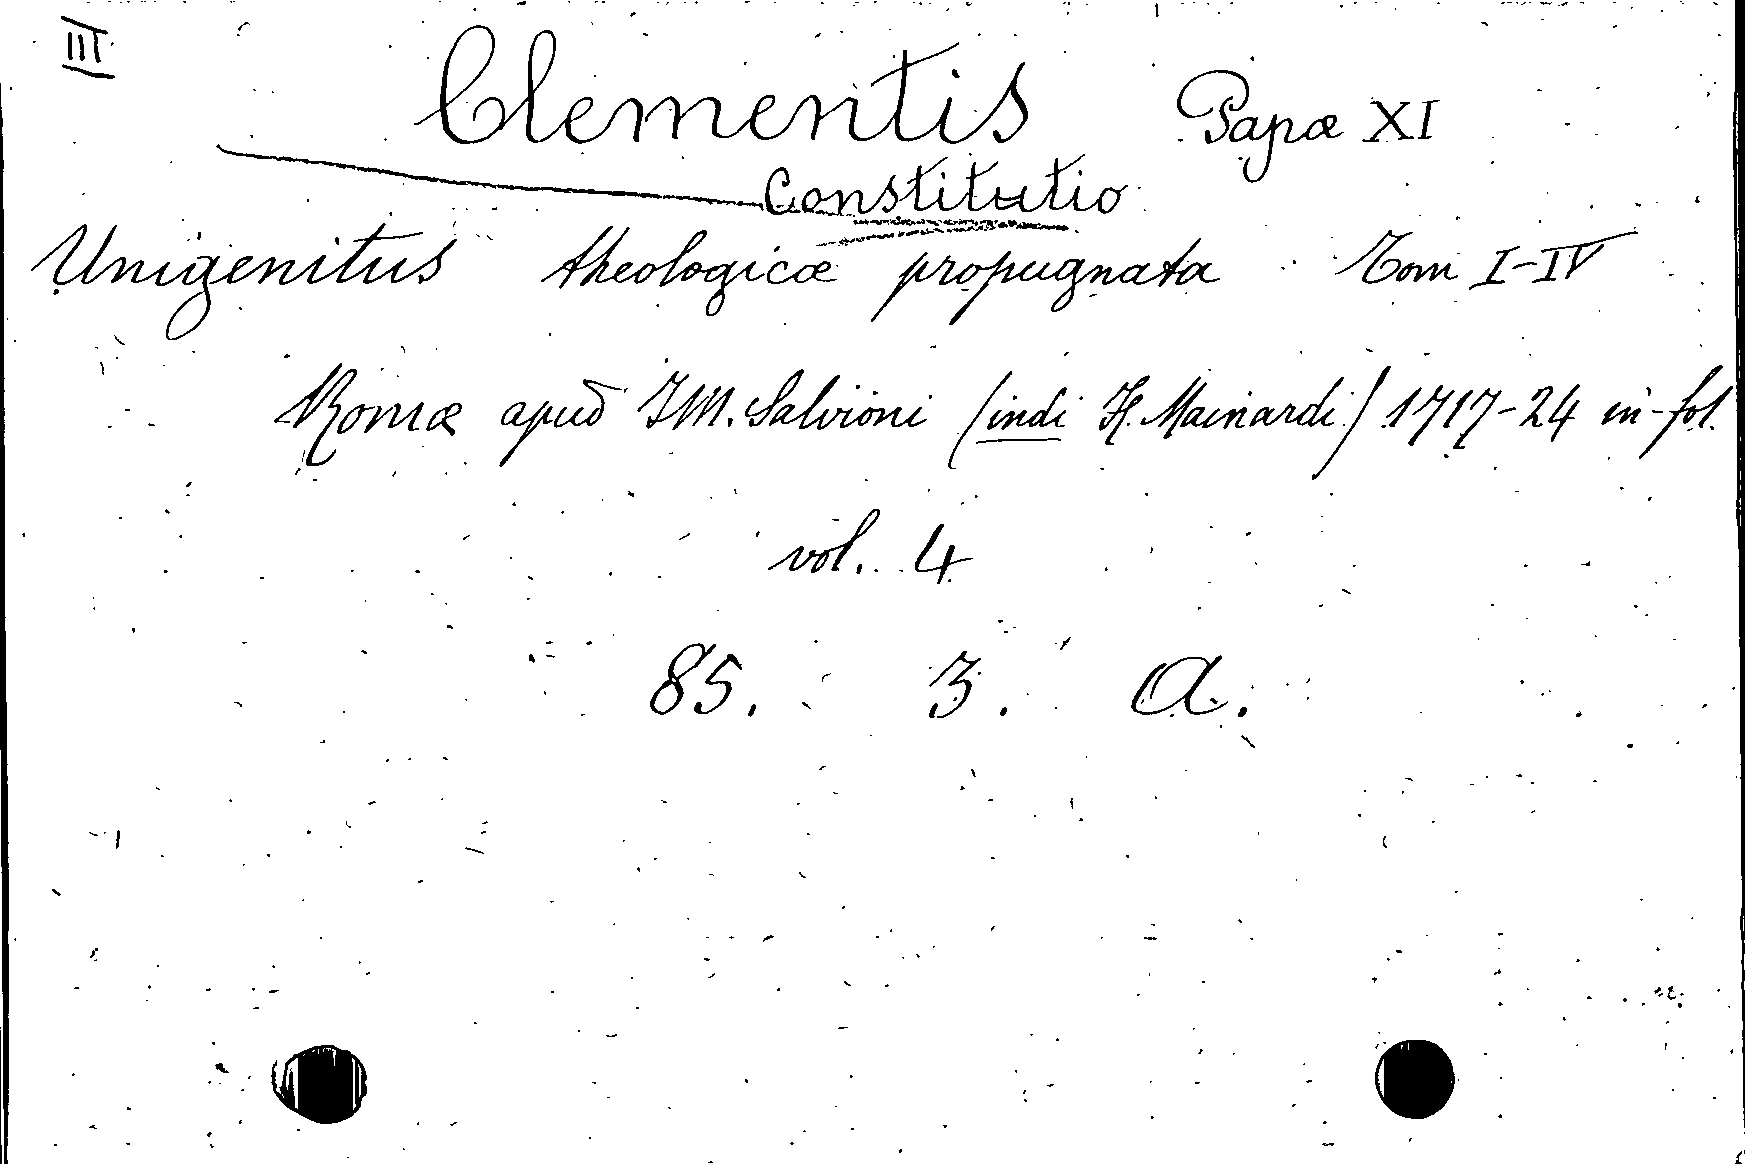 III
Clementis Papæ XI
Constitutio
Unigenitus theologicæ propugnata Tom I-IV
Romæ apud J.M. Salvioni (indi H. Mainardi) 1717-24 in-fol.
vol. 4
85. 3. A.